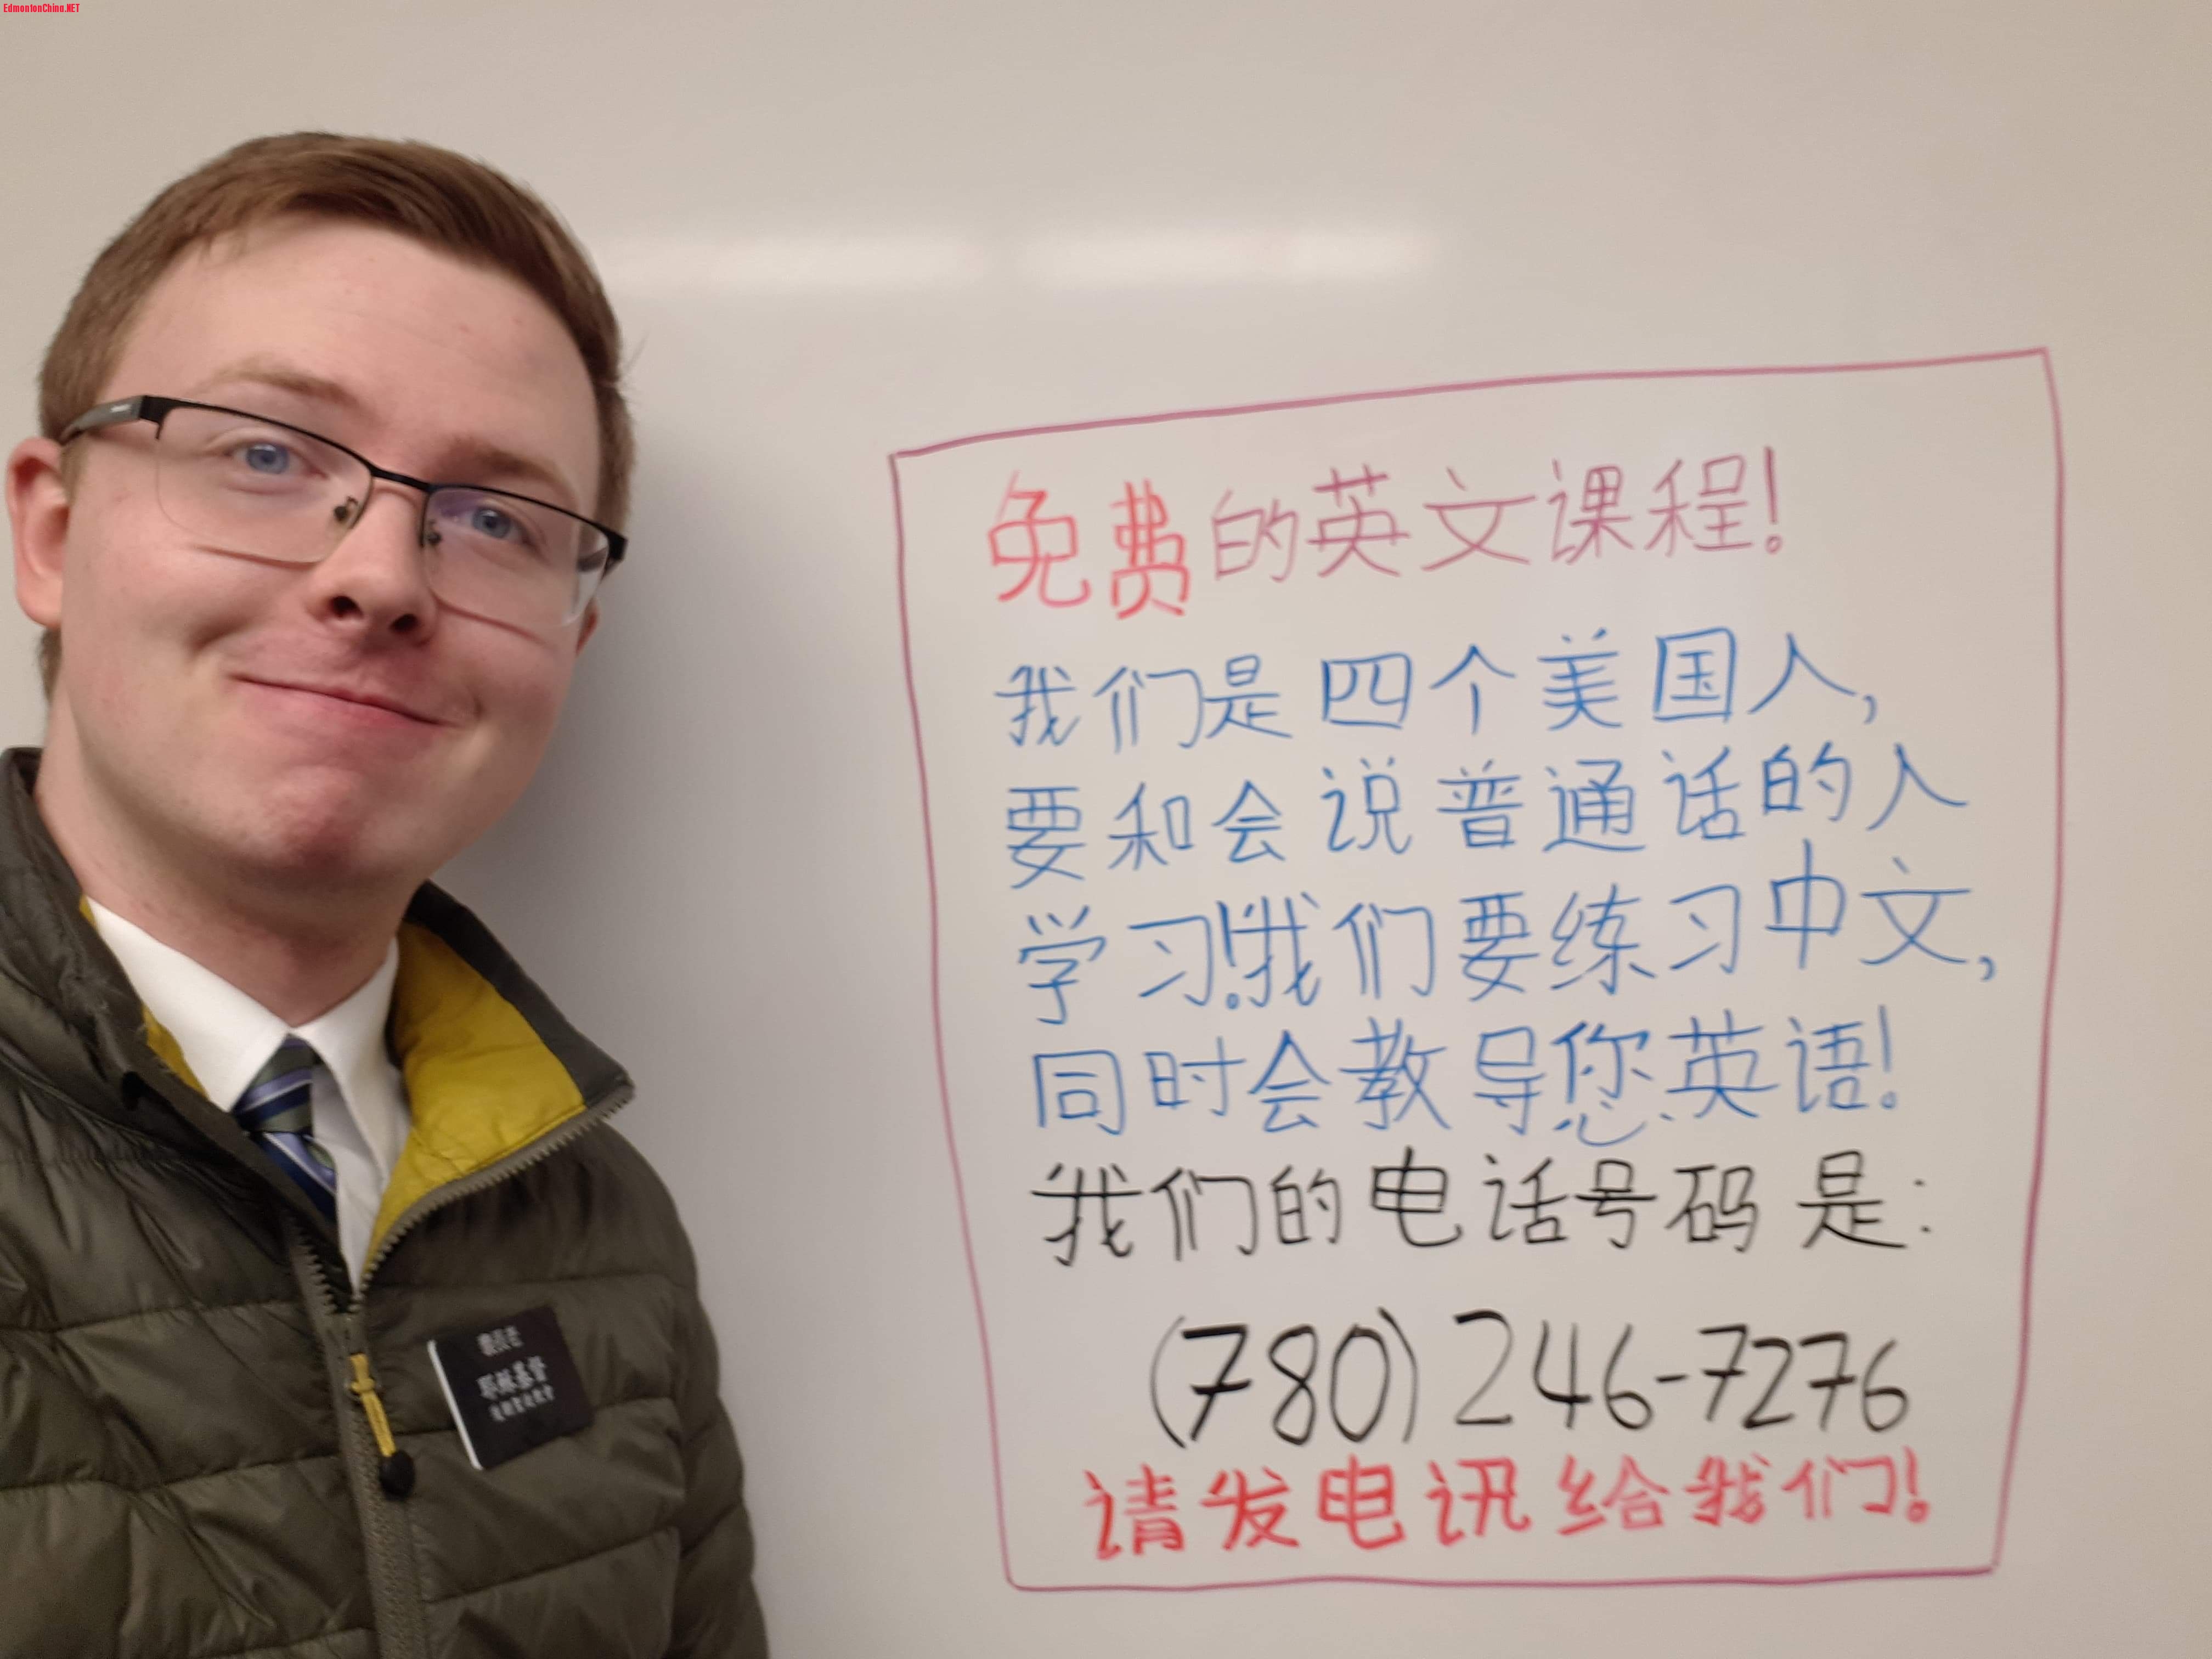 EdmontonChina.NET
免费的英文课程!
我们是四个美国人,
要和会说普通话的人
学习!我们要练习中文,
同时会教导您英语!
我们的电话号码是:
(780) 246-7276
请发电讯给我们!
長老
耶穌基督
後期聖徒教會